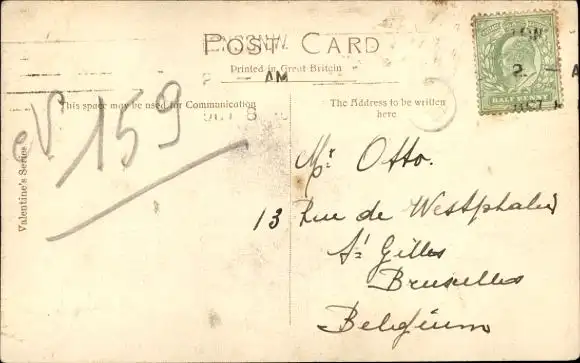 POST CARD
Printed in Great Britain
AM
2
HALF PENNY
This space may be used for Communication
The Address to be written
here
OCT 8
Valentine's Series
159
Mr. Otto.
13 Rue de Westphalie
St Gilles
Bruxelles
Belgium